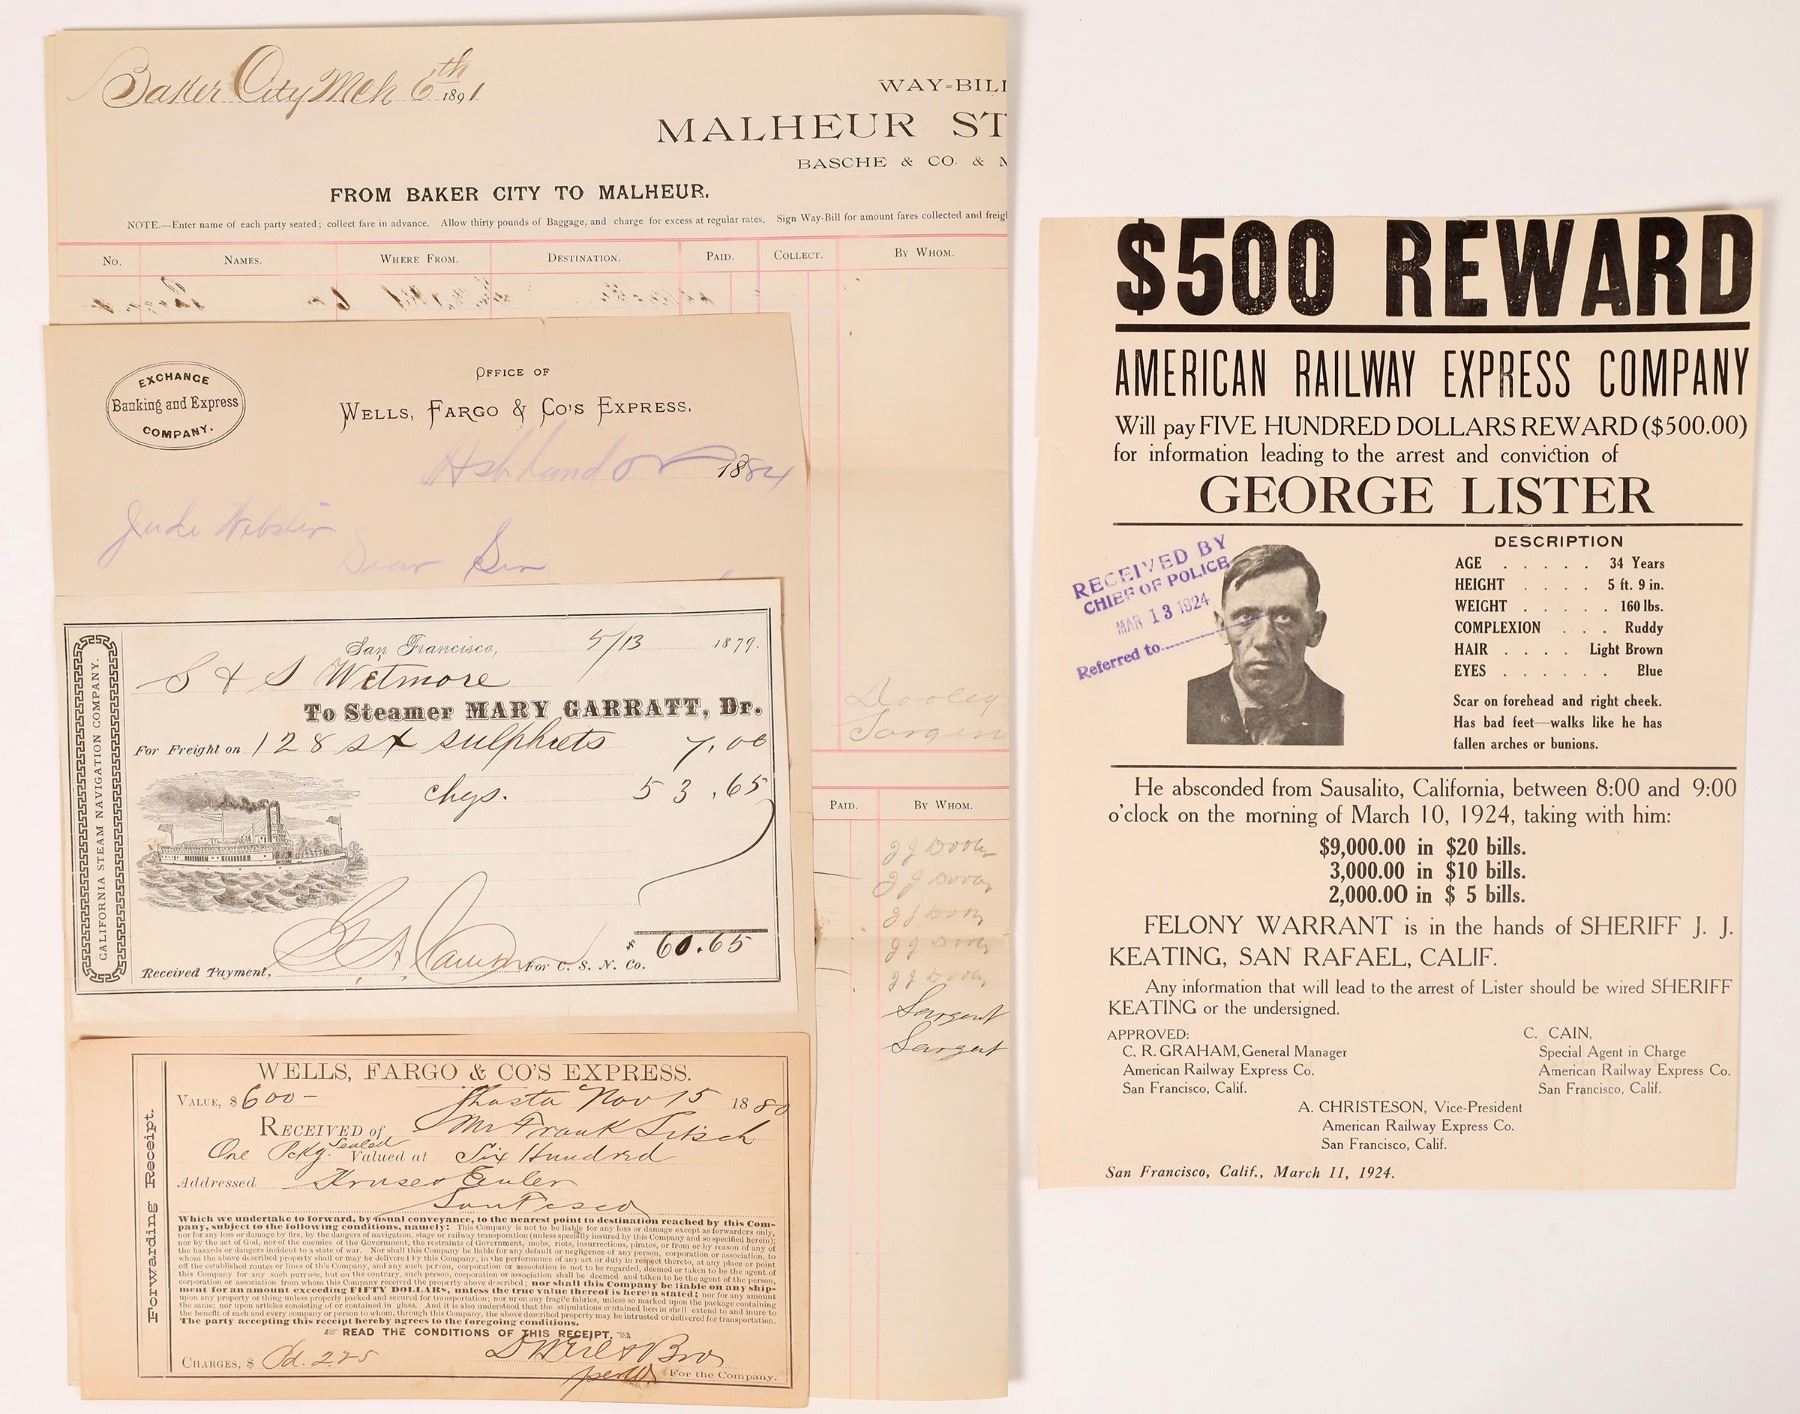 Baker City Mch 6th 1891
WAY-BILL
MALHEUR ST
BASCHE & CO. & M
FROM BAKER CITY TO MALHEUR.
NOTE.—Enter name of each party seated; collect fare in advance. Allow thirty pounds of Baggage, and charge for excess at regular rates. Sign Way-Bill for amount fares collected and freigh
No. NAMES. WHERE FROM. DESTINATION. PAID. COLLECT. BY WHOM.
Dooley
Sargen
PAID. BY WHOM.
J J Dooly
J J Dooly
J J Dooly
J J Dooly
J J Dooly
Sargent
Sargent
EXCHANGE
Banking and Express
COMPANY.
OFFICE OF
WELLS, FARGO & CO'S EXPRESS.
Ashland Or 1884
Jude Webster
Dear Sir
CALIFORNIA STEAM NAVIGATION COMPANY.
San Francisco, 5/13 1879.
S & S Wetmore
To Steamer MARY GARRATT, Dr.
For Freight on 128 sx sulphrets 7.00
chgs. 53.65
$ 60.65
Received Payment, For C. S. N. Co.
Forwarding Receipt.
WELLS, FARGO & CO'S EXPRESS.
VALUE, $600— Shasta Nov 15 1880
RECEIVED of Mr Frank Litsch
One Pckg. Sealed Valued at Six Hundred
Addressed Kruse & Euler
San Fsco
Which we undertake to forward, by usual conveyance, to the nearest point to destination reached by this Com-
pany, subject to the following conditions, namely: This Company is not to be liable for any loss or damage except as forwarders only,
nor for any loss or damage by fire, by the dangers of navigation, stage or railway transportation (unless specially insured by this Company and so specified herein);
nor by the act of God, nor of the enemies of the Government, the restraints of Government, mobs, riots, insurrections, pirates, or from or by reason of any of
the hazards or dangers incident to a state of war. Nor shall this Company be liable for any default or negligence of any person, corporation or association, to
whom the above described property shall or may be delivered by this Company, in the performance of any act or duty in respect thereto, at any place or point
off the established routes or lines of this Company, and any such person, corporation or association is not to be regarded, deemed or taken to be the agent of
this Company for any such purpose, but on the contrary, such person, corporation or association shall be deemed and taken to be the agent of the person,
corporation or association from whom this Company received the property above described; nor shall this Company be liable on any ship-
ment for an amount exceeding FIFTY DOLLARS, unless the true value thereof is herein stated; nor for any amount
upon any property or thing unless properly packed and secured for transportation; nor upon any fragile fabrics, unless so marked upon the package containing
the same; nor upon articles consisting of or contained in glass. And it is also understood that the stipulations contained herein shall extend to and inure to
the benefit of each and every company or person to whom, through this Company, the above described property may be intrusted or delivered for transportation.
The party accepting this receipt hereby agrees to the foregoing conditions.
READ THE CONDITIONS OF THIS RECEIPT.
CHARGES, $ Pd. 2.25 D Weil & Bro
For the Company.
$500 REWARD
AMERICAN RAILWAY EXPRESS COMPANY
Will pay FIVE HUNDRED DOLLARS REWARD ($500.00)
for information leading to the arrest and conviction of
GEORGE LISTER
RECEIVED BY
CHIEF OF POLICE
MAR 13 1924
Referred to
DESCRIPTION
AGE . . . . . 34 Years
HEIGHT . . . . 5 ft. 9 in.
WEIGHT . . . . . 160 lbs.
COMPLEXION . . . Ruddy
HAIR . . . . Light Brown
EYES . . . . . . Blue
Scar on forehead and right cheek.
Has bad feet—walks like he has
fallen arches or bunions.
He absconded from Sausalito, California, between 8:00 and 9:00
o'clock on the morning of March 10, 1924, taking with him:
$9,000.00 in $20 bills.
3,000.00 in $10 bills.
2,000.00 in $ 5 bills.
FELONY WARRANT is in the hands of SHERIFF J. J.
KEATING, SAN RAFAEL, CALIF.
Any information that will lead to the arrest of Lister should be wired SHERIFF
KEATING or the undersigned.
APPROVED:
C. R. GRAHAM, General Manager
American Railway Express Co.
San Francisco, Calif.
C. CAIN,
Special Agent in Charge
American Railway Express Co.
San Francisco, Calif.
A. CHRISTESON, Vice-President
American Railway Express Co.
San Francisco, Calif.
San Francisco, Calif., March 11, 1924.